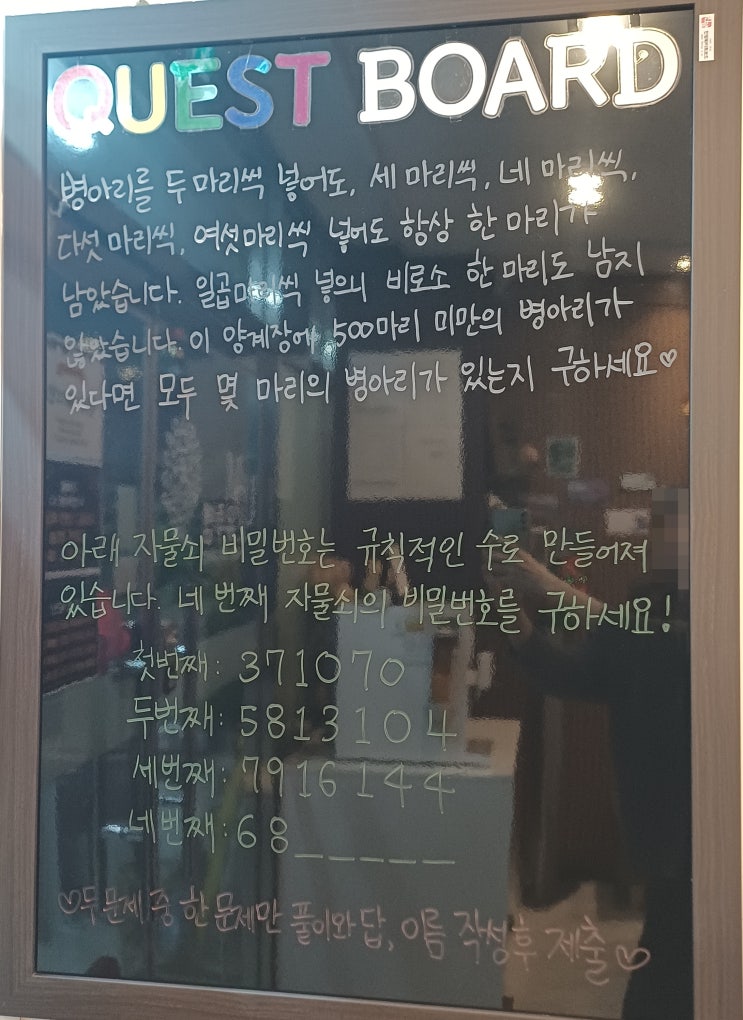 QUEST BOARD
병아리를 두 마리씩 넣어도, 세 마리씩, 네 마리씩,
다섯 마리씩, 여섯마리씩 넣어도 항상 한 마리가
남았습니다. 일곱마리씩 넣으니 비로소 한 마리도 남지
않았습니다. 이 양계장에 500마리 미만의 병아리가
있다면 모두 몇 마리의 병아리가 있는지 구하세요♡
아래 자물쇠 비밀번호는 규칙적인 수로 만들어져
있습니다. 네 번째 자물쇠의 비밀번호를 구하세요!
첫번째: 371070
두번째: 5813104
세번째: 7916144
네번째: 68_____
♡두 문제 중 한 문제만 풀이와 답, 이름 작성 후 제출♡